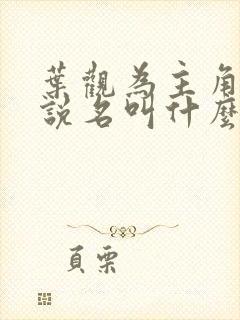 葉觀為主角
說名叫什麼
頁栗